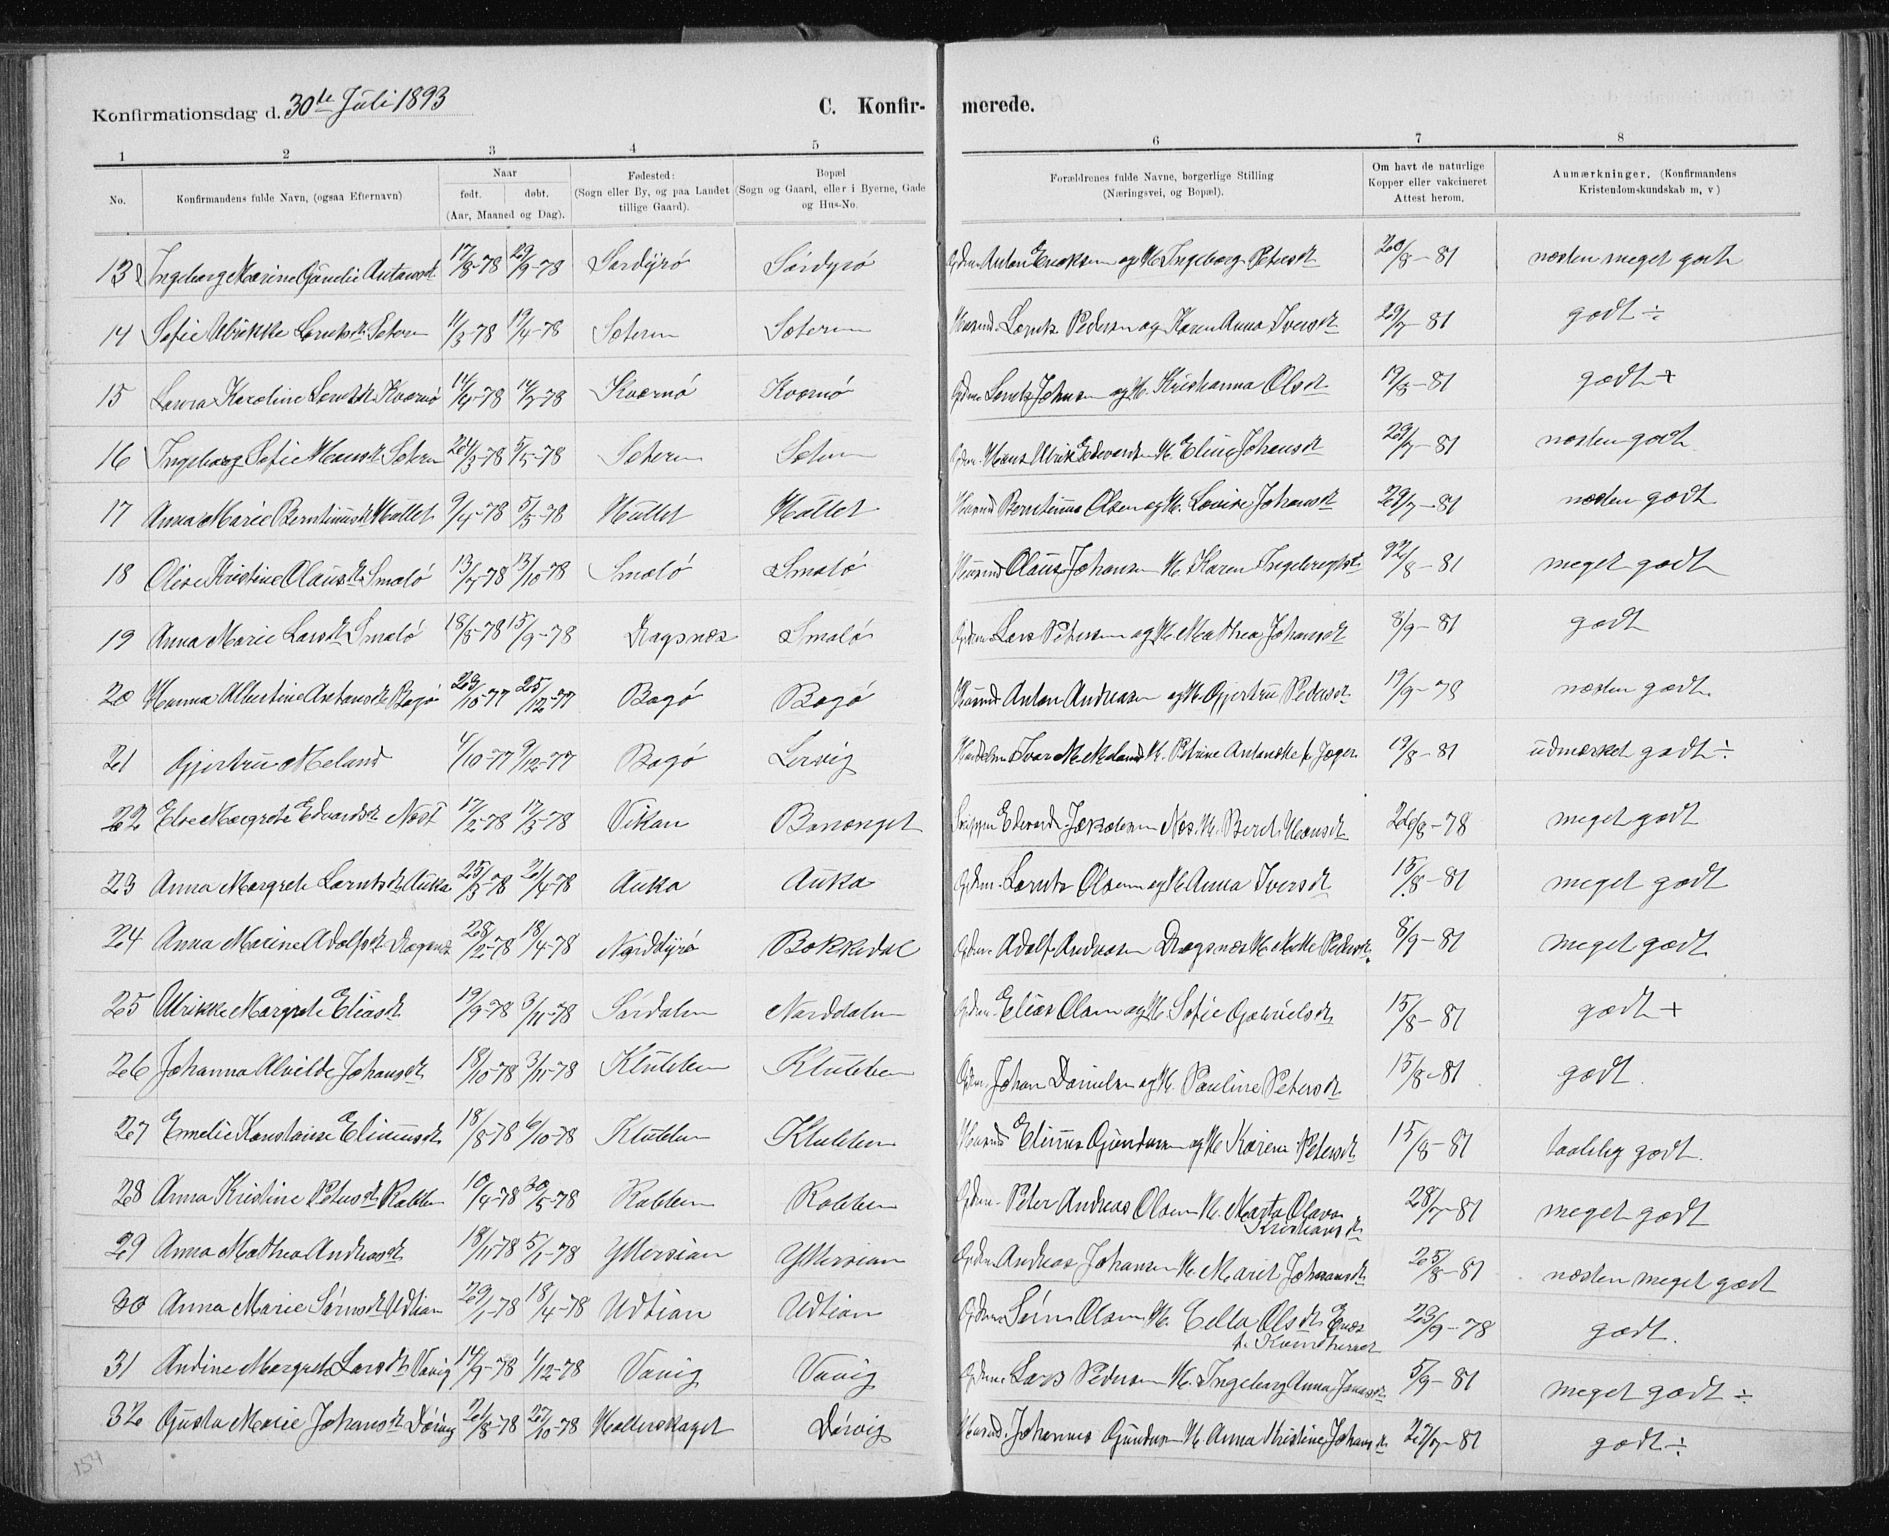 Konfirmationsdag d. 30te Juli 1893
C. Konfir- merede.
1 2 3 4 5 6 7 8
No.
Konfirmandens fulde Navn, (ogsaa Efternavn)
Naar
født. døbt.
(Aar, Maaned og Dag).
Fødested:
(Sogn eller By, og paa Landet
tillige Gaard).
Bopæl
(Sogn og Gaard, eller i Byerne, Gade
og Hus-No.
Forældrenes fulde Navne, borgerlige Stilling
(Næringsvei, og Bopæl).
Om havt de naturlige
Kopper eller vakcineret
Attest herom.
Anmærkninger. (Konfirmandens
Kristendomskundskab m, v)
13 Ingeborg Marine Antonsdt 17/8-78 29/9-78 Sørdyrø Sørdyrø Gdm Anton og H. Ingeborg Petersdt 20/8-81 næsten meget godt
14 Sofie Ulrikke Lorntsdt Seteren 11/3-78 19/4-78 Seteren Seteren Husmd Lorntz Pedersen og Karen Anna Iversdt 29/7-81 godt ÷
15 Laura Karoline Lorntsdt Kværnø 14/4-78 Kværnø Kværnø Gdm Lorntz Johnsen og H. Kristianna Olsdt 81 godt +
16 Ingeborg Sofie Hansdt Seteren 24/3-78 5/5-78 Seteren Seteren Gdm. Hans Ulrik Edvardsen H. Eline Johansdt 29/7-81 næsten godt
17 Anna Marie Berntinusdt Hallet 9/4-78 5/5-78 Hallet Hallet Husmd Berntinus Olsen og H. Lovise Johansdt 29/7-81 næsten godt
18 Olise Kristine Olausdt Smalø 13/7-78 13/10-78 Smalø Smalø Husmd Olaus Johansen H. Karen Ingebregtsdt 81 meget godt
19 Anna Marie Larsdt Smalø 18/8-78 15/9-78 Dragsnes Smalø Gdm Lars Petersen og H. Mathea Johansdt 8/9-81 godt
20 Hanna Albertine Antonsdt Bogø 23/10-77 25/12-77 Bogø Bogø Husmd Anton Andreasen og H. Gjertru Pedersdt 17/9-78 næsten godt.
21 Gjertru Meland 4/10-77 9/12-77 Bogø Lervig Ivar M. Meland H. Petrine Antonette f. Jæger 19/8-81 udmærket godt ÷
22 Else Margrete Edvardsdt Næss 17/2-78 17/3-78 Vikan Edvard Jakobsen Næs. H. Berit Hansdt 26/8-78 meget godt
23 Anna Margrete Lorntsdt Auka 25/3-78 21/4-78 Auka Auka Gdm. Lorntz Olsen og H. Anna Iversdt 15/8-81 meget godt
24 Anna Marine Adolfsdt Dragsnes 28/2-78 18/4-78 Norddyrø Bekkedal Gdm. Adolf Andreasen Dragsnes H. Mette Pedersdt. 8/9-81 meget godt
25 Ulrikke Margrete Eliasdt 19/9-78 3/11-78 Sørdalen Norddalen Gdm. Elias Olsen og H. Sofie Gabrielsdt 15/8-81 godt +
26 Johanna Alvilde Johansdt 18/10-78 3/11-78 Klubben Klubben Gdm. Johan Danielsen og H. Pauline Petersdt 15/8-81 godt.
27 Emelie Konstanse Elinusdt 18/8-78 6/10-78 Klubben Klubben Husmd Elinus Gundersen og H. Karen Petersdt 15/8-81 taalelig godt.
28 Anna Kristine Petersdt Rabben 10/4-78 30/5-78 Rabben Rabben Gdm. Peter Andreas Olsen H. Marta Olava
Kristiansdt 28/7-81 meget godt
29 Anna Mathea Andreasdt 18/11-78 78 Yttersian Yttersian Gdm Andreas Johansen H. Maret Johansdt 25/8-81 næsten meget godt
30 Anna Marie Sørensdt Udtian 29/1-78 18/4-78 Udtian Udtian Gdm Søren Olsen H. Olsdt Enes
p. Kvindherred 23/9-78 godt.
31 Andine Margrete Larsdt Vavig 14/9-78 1/12-78 Vavig Vavig Gdm Lars Pedersen H. Ingeborg Anna Jonasdt 5/9-81 meget godt ÷
32 Gusta Marie Johansdt Dørvig 21/8-78 27/10-78 Hallerskaget Dørvig Husmd. Johannes Gundersen H. Anna Kristine Johansdt 27/7-81 godt ÷
154